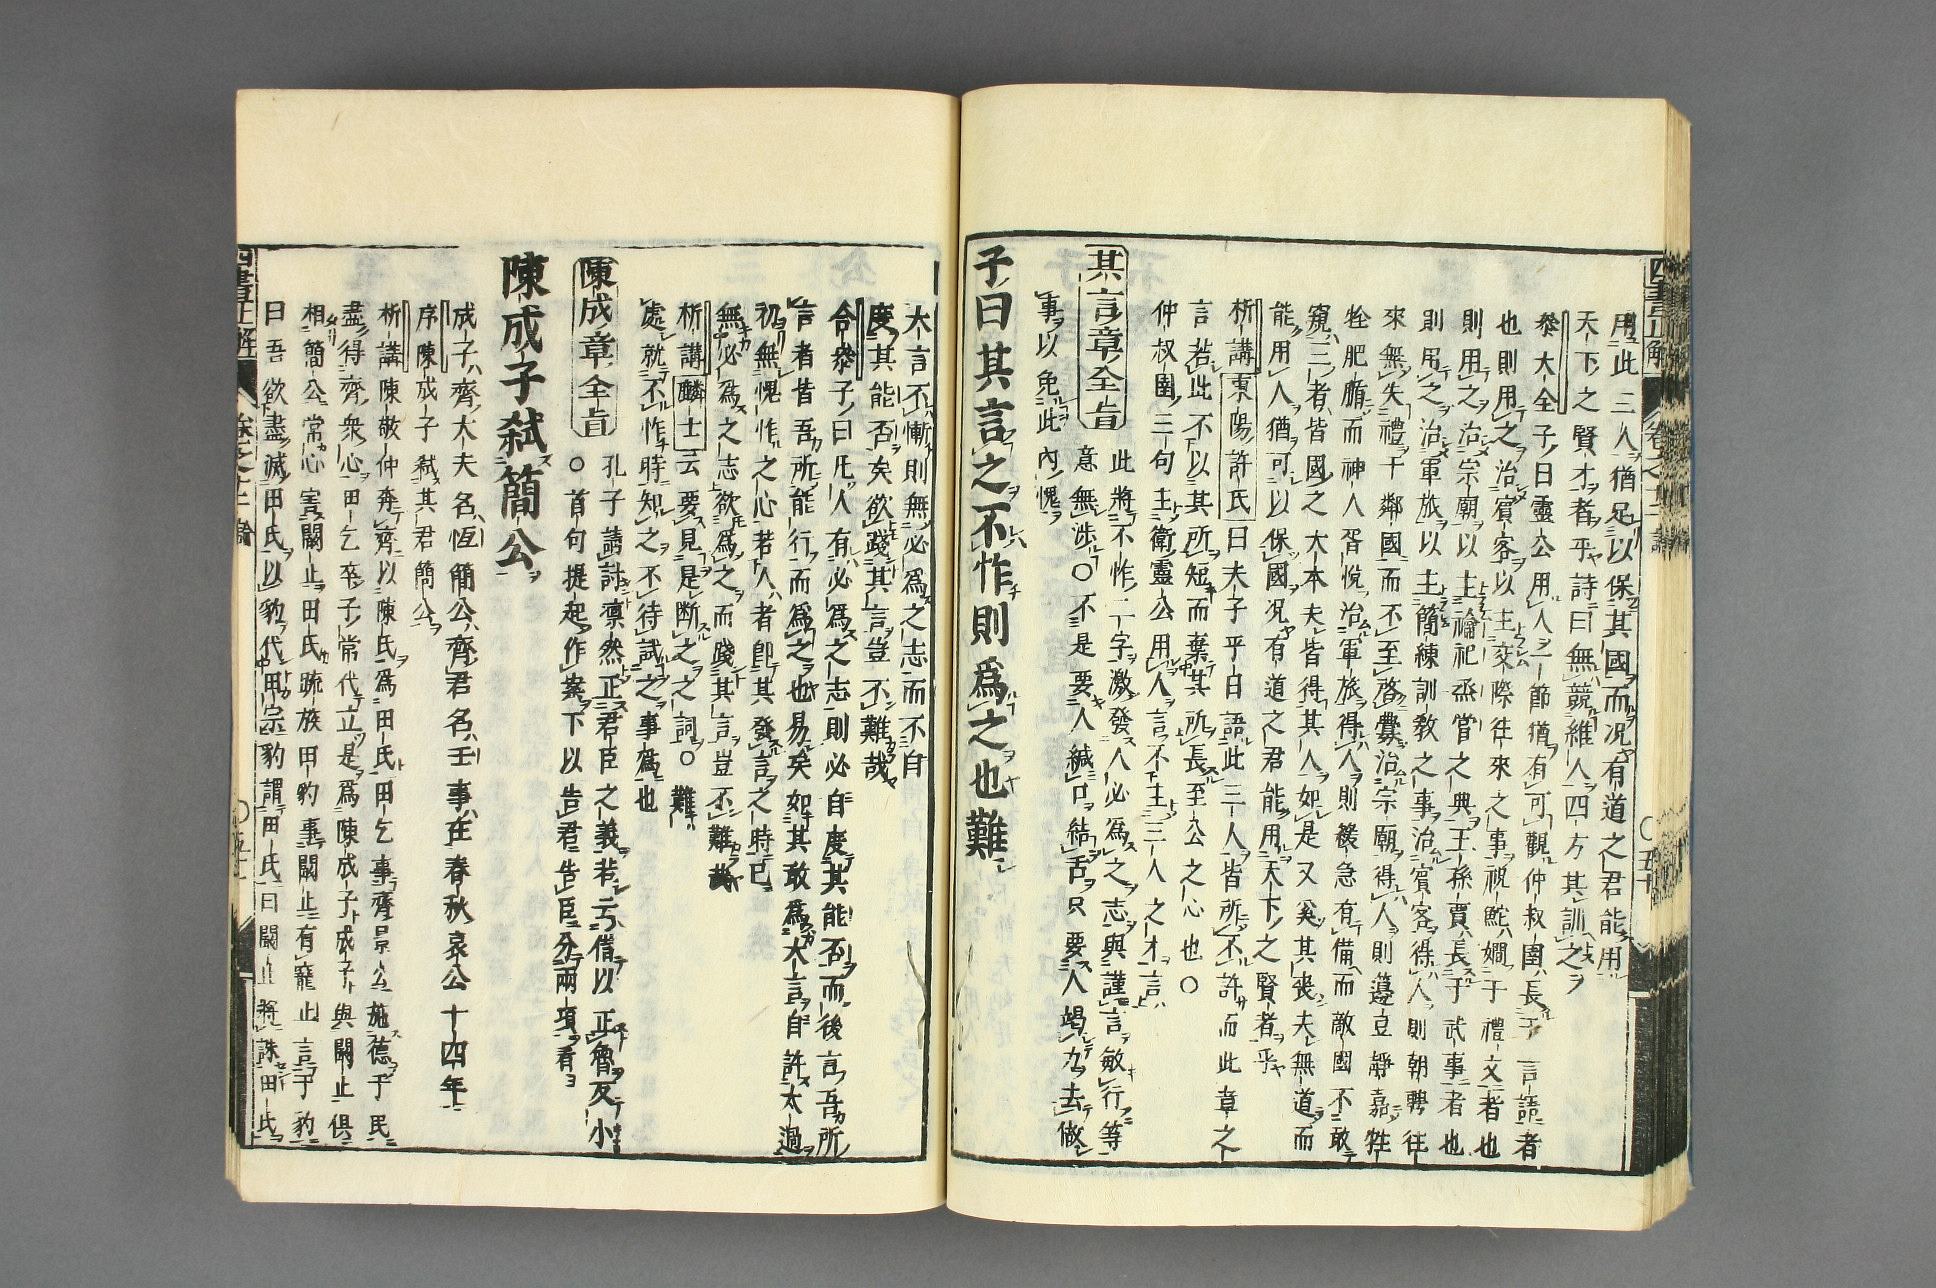 用此三人猶足以保其國而况有道之君能用
天下之賢才者乎詩曰無競維人四方其訓之
叅大全子曰靈公用人之一節猶有可觀仲叔圉長于言語者
也則用之治賓客以主交際往來之事祝鮀嫺于禮文者也
則用之治宗廟以主禴祀烝甞之典王孫賈長于武事者也
則用之治軍旅以主簡練訓敎之事治賓客得人則朝聘往
來無失禮于鄰國而不至啓釁治宗廟得人則籩豆靜嘉牲
牷肥腯而神人胥悅治軍旅得人則緩急有備而敵國不敢
窺三者皆國之大本夫皆得其人如是又奚其喪夫無道而
能用人猶可以保國况有道之君能用天下之賢者乎
析講東陽許氏曰夫子平日語此三人皆所不許而此章之
言若此不以其所短而棄其所長至公之心也○
仲叔圉三句主衛靈公用人言不主三人之才言
其言章全旨
此將不怍二字激發人必爲之志與謹言敏行等
意無涉○不是要人緘口結舌只要人竭力去做
事以免此內愧
子曰其言之不怍則爲之也難
大言不慚則無必爲之志而不自
度其能否矣欲踐其言豈不難哉
合叅子曰凡人有必爲之志則必自度其能否而後言吾所
言者皆吾所能行而爲之也易矣如其敢爲大言自許太過
初無愧怍之心若人者卽其發言之時已
無必爲之志欲爲之而踐其言豈不難哉
析講麟士云要見是断之之詞○難
處就不怍時知之不待試之事爲也
陳成章全旨
孔子請討凛然正君臣之義若云借以正魯反小
○首句提起作案下以告君告臣分兩項看
陳成子弑簡公
成子齊大夫名恆簡公齊君名壬事在春秋哀公十四年
序陳成子弑其君簡公
析講陳敬仲奔齊以陳氏爲田氏田乞事齊景公施德于民
盡得齊衆心田乞卒子常代立是爲陳成子成子與闞止俱
相簡公常心害闞止田氏疏族田豹事闞止有寵止言于豹
曰吾欲盡滅田氏以豹代田宗豹謂田氏曰闞止將誅田氏